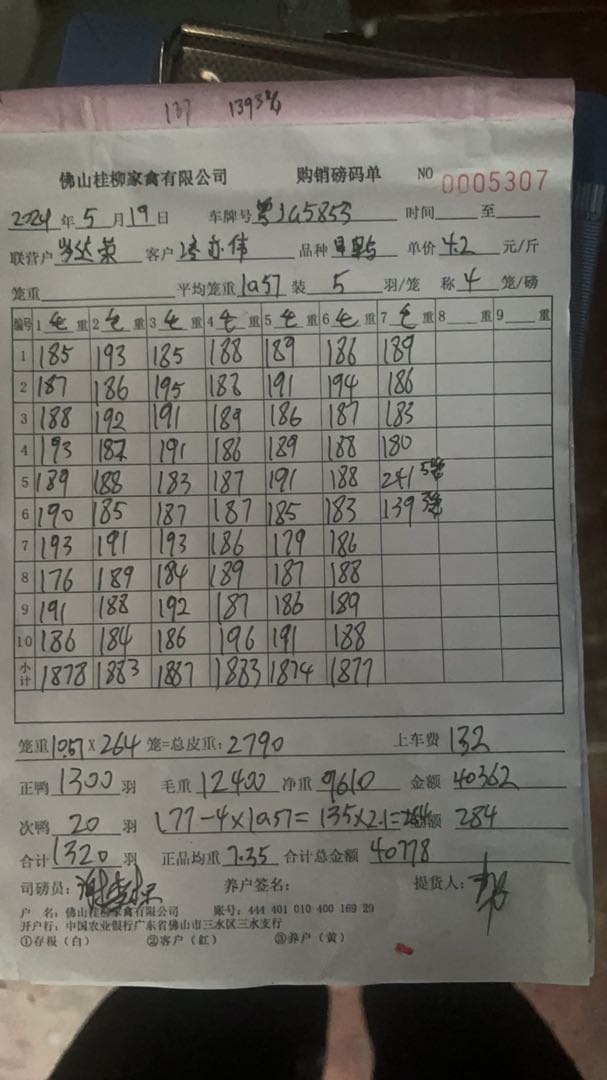 137 139 3笼
佛山桂柳家禽有限公司 购销磅码单 NO 0005307
2024年5月19日 车牌号 粤JG5853 时间 至
联营户 客户 亦伟 品种 单价 4.2 元/斤
笼重 平均笼重 10.57 装 5 羽/笼 称 4 笼/磅
编号 1 毛 重 2 毛 重 3 毛 重 4 毛 重 5 毛 重 6 毛 重 7 毛 重 8 重 9 重
1 185 193 185 188 189 186 189
2 187 186 195 188 191 194 186
3 188 192 191 189 186 187 183
4 193 187 191 186 189 188 180
5 189 188 183 187 191 188 241 5笼
6 190 185 187 187 185 183 139 3笼
7 193 191 193 186 179 186
8 176 189 184 189 187 188
9 191 188 192 187 186 189
10 186 184 186 196 191 188
小计 1878 1883 1887 1883 1874 1877
笼重 10.57 X 264 笼=总皮重: 2790 上车费 132
正鸭 1300 羽 毛重 12400 净重 9610 金额 40362
次鸭 20 羽 177-4×10.57=135×2.1= 额 284
合计 1320 羽 正品均重 7.35 合计总金额 40778
司磅员: 养户签名: 提货人:
户 名: 佛山桂柳家禽有限公司 账号: 444 401 010 400 169 29
开户行: 中国农业银行广东省佛山市三水区三水支行
①存根（白） ②客户（红） ③养户（黄）